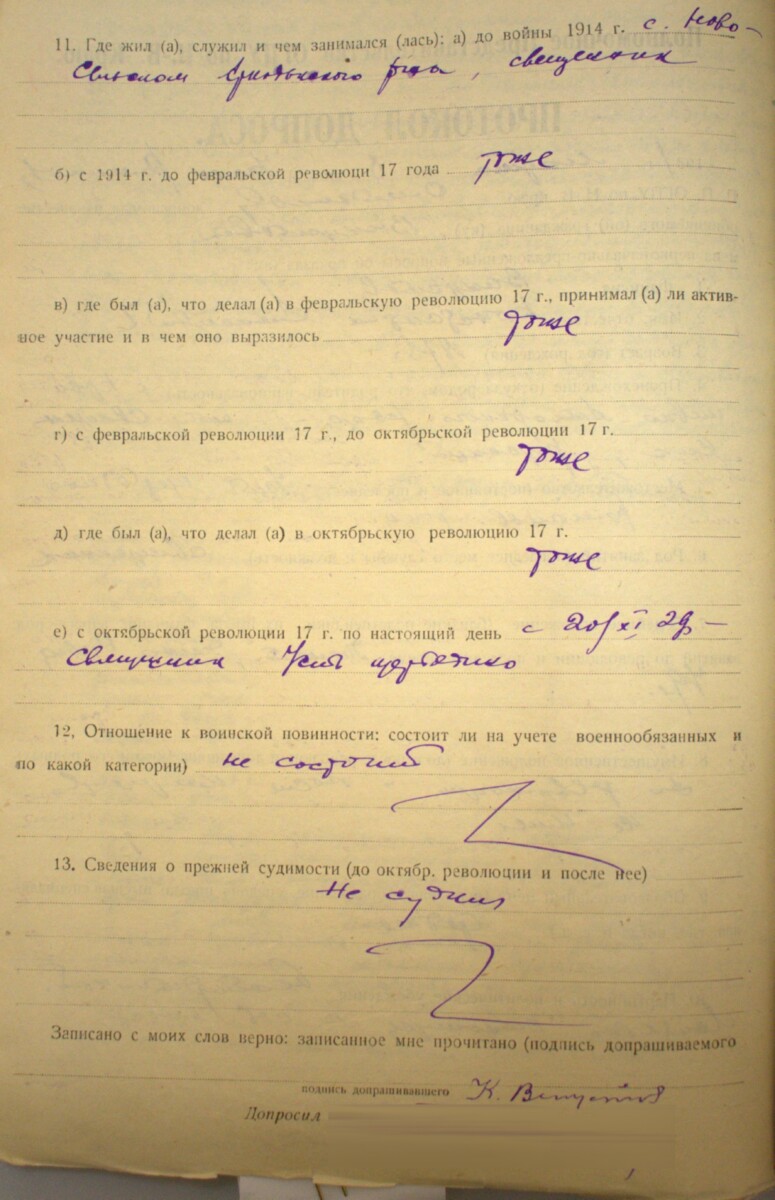 11. Где жил (а), служил и чем занимался (лась): а) до войны 1914 г. с. Ново-
священник
б) с 1914 г. до февральской революци 17 года тоже
в) где был (а), что делал (а) в февральскую революцию 17 г., принимал (а) ли актив-
ное участие и в чем оно выразилось тоже
г) с февральской революции 17 г., до октябрьской революции 17 г.
тоже
д) где был (а), что делал (а) в октябрьскую революцию 17 г.
тоже
е) с октябрьской революции 17 г. по настоящий день с 20/XI 29
Священник
12, Отношение к воинской повинности: состоит ли на учете военнообязанных и
по какой категории) не состоит
13. Сведения о прежней судимости (до октябр. революции и после нее)
Не судил
Записано с моих слов верно: записанное мне прочитано (подпись допрашиваемого
подпись допрашивавшего К.
Допросил